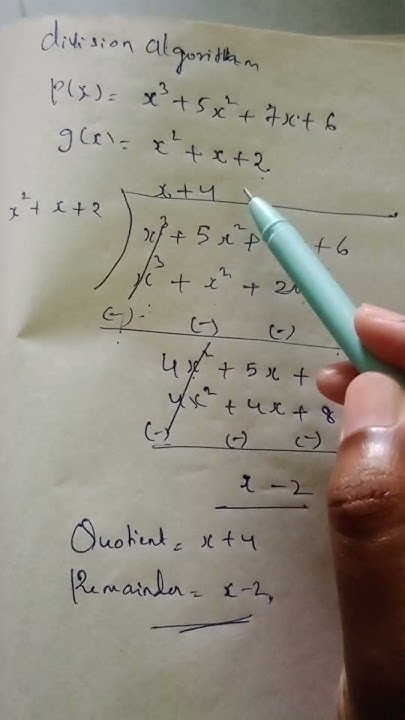 division algorithm
p(x) = x³ + 5x² + 7x + 6
g(x) = x² + x + 2
x + 4
x² + x + 2 ) x³ + 5x² + + 6
x³ + x² + 2x
(-) (-) (-)
4x² + 5x +
4x² + 4x + 8
(-) (-) (-)
x - 2
Quotient = x + 4
Remainder = x - 2,